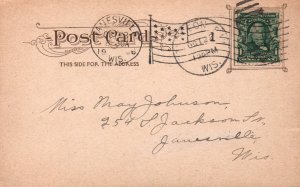 Post Card
THIS SIDE FOR THE ADDRESS
JANESVILLE
WIS.
WIS.
Miss May Johnson,
254 S Jackson St,
Janesville,
Wis.